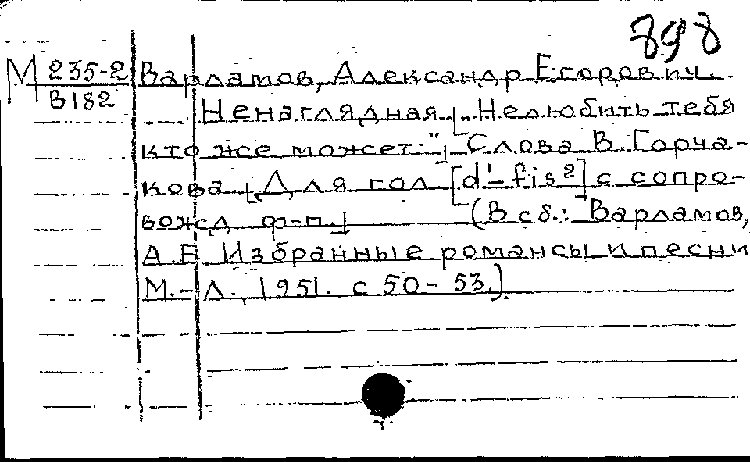 898
М 235-2 Варламов, Александр Егорович.
В182
Ненаглядная. „Не любить тебя
кто же может:" Слова В. Горча-
кова [Для гол. [d¹-fis²] с сопро-
вожд. ф-п.] (В сб.: "Варламов,
А. Е. Избранные романсы и песни
М.-Л., 1951. с 50-53.)